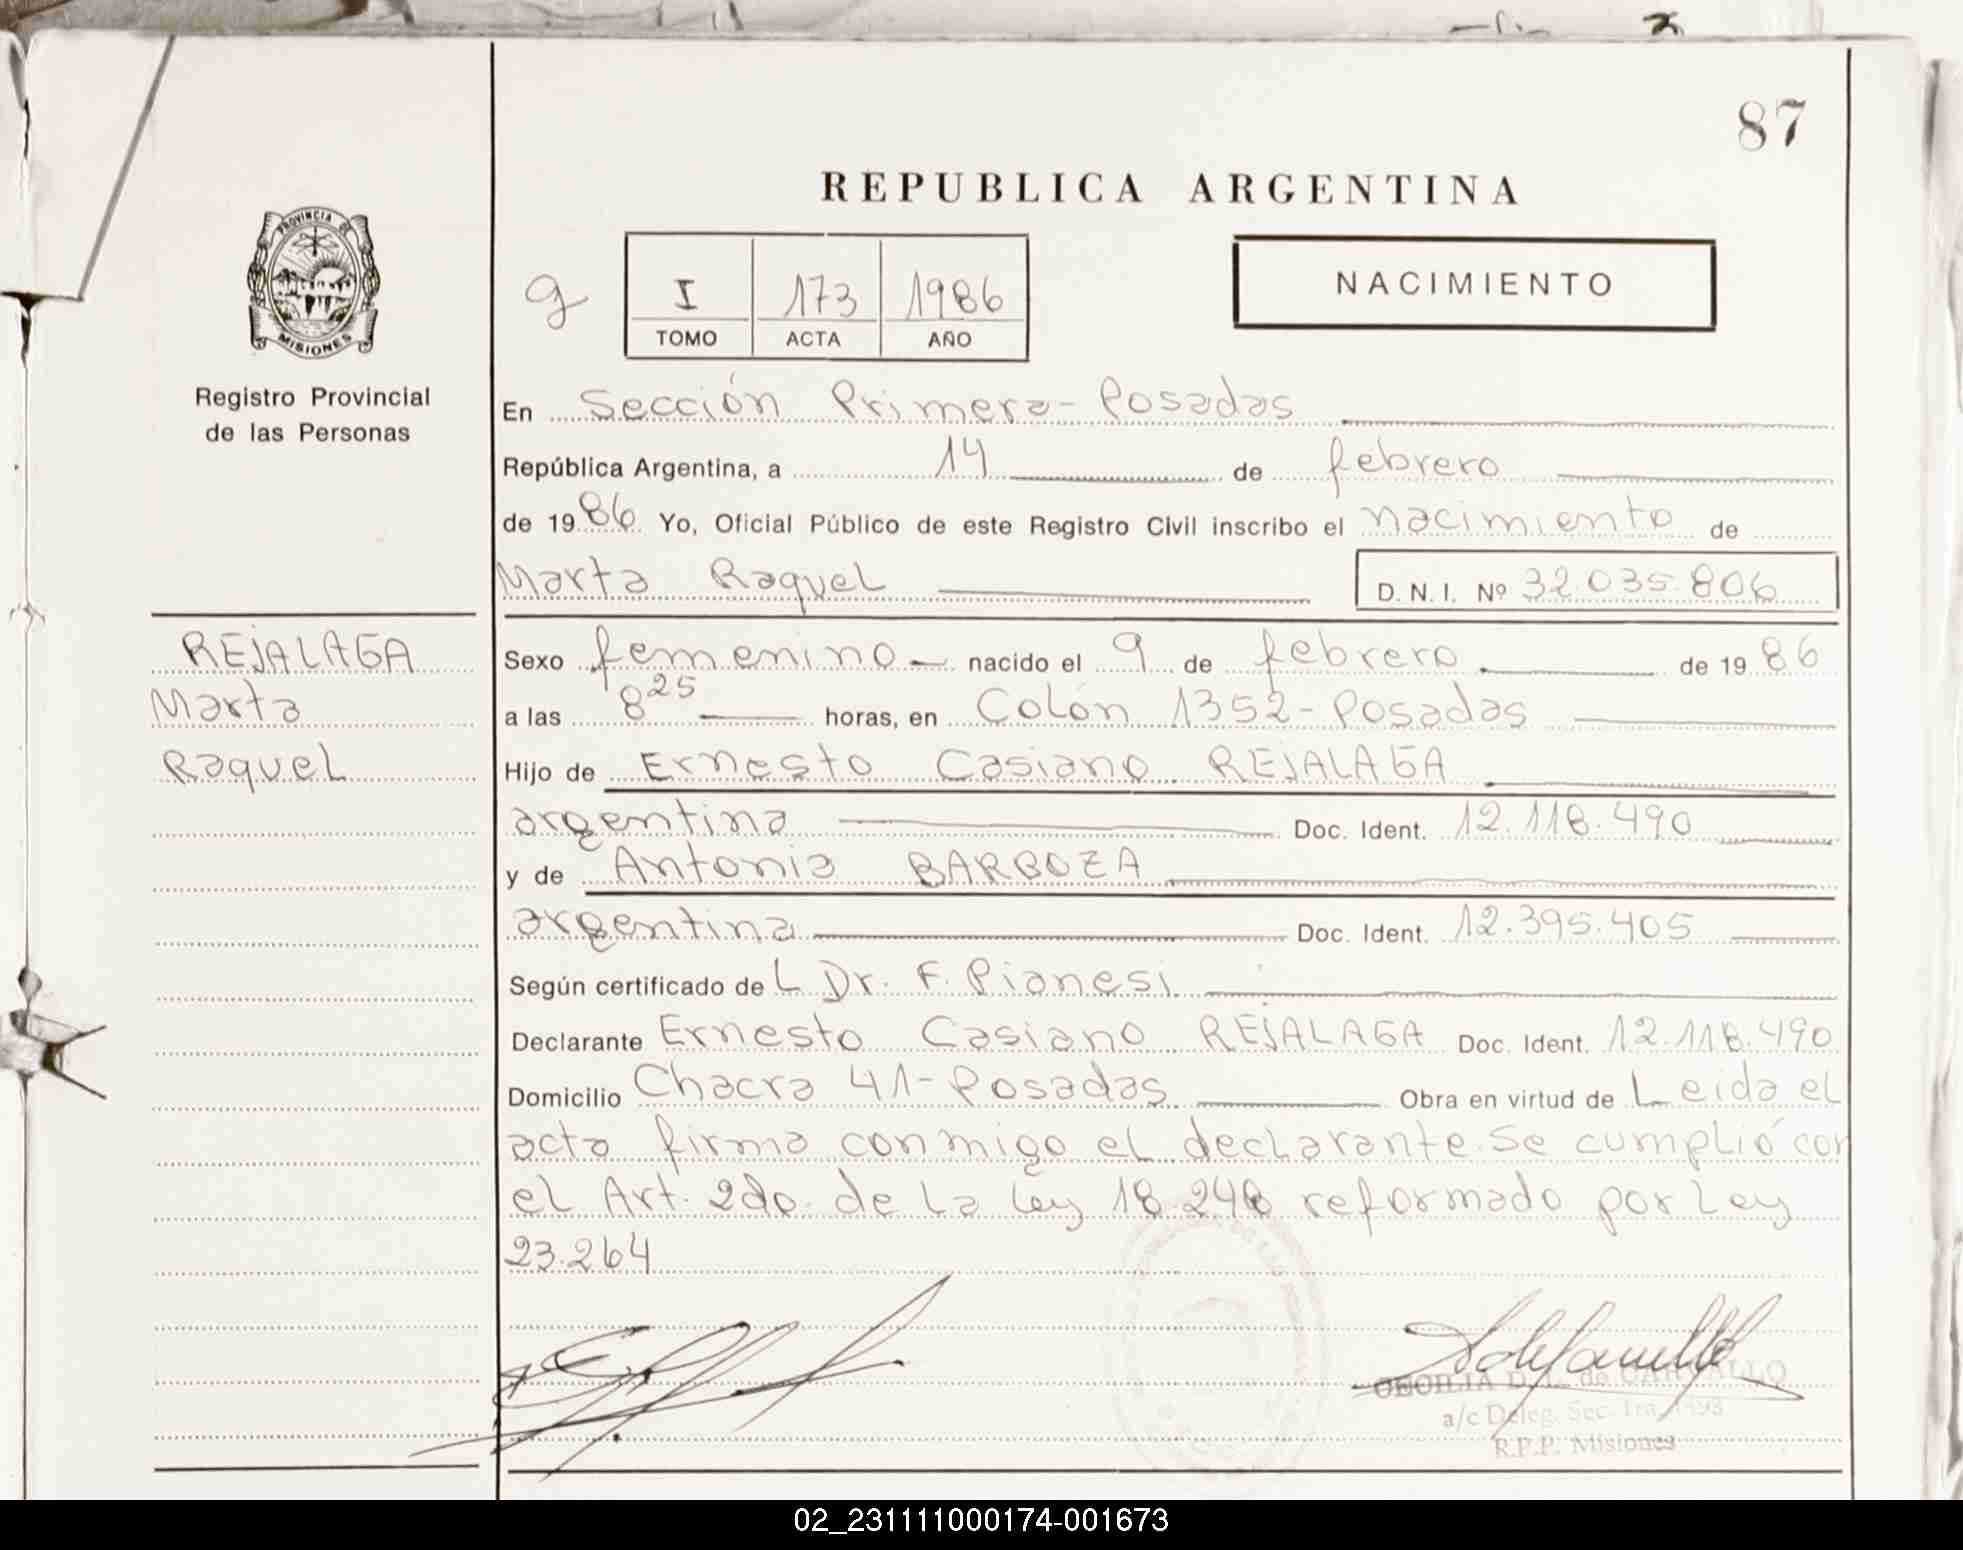 87
REPUBLICA ARGENTINA
PROVINCIA DE
MISIONES
Registro Provincial
de las Personas
g
I 173 1986
TOMO ACTA AÑO
NACIMIENTO
En Sección Primera - Posadas
República Argentina, a 14 de febrero
de 1986 Yo, Oficial Público de este Registro Civil inscribo el nacimiento de
Marta Raquel D.N.I. Nº 32.035.806
REJALAGA
Marta
Raquel
Sexo femenino nacido el 9 de febrero de 1986
a las 8 25 horas, en Colón 1352 - Posadas
Hijo de Ernesto Casiano REJALAGA
argentina Doc. Ident. 12.118.490
y de Antonia BARBOZA
argentina Doc. Ident. 12.395.405
Según certificado de L Dr. F. Pianesi
Declarante Ernesto Casiano REJALAGA Doc. Ident. 12.118.490
Domicilio Chacra 41 - Posadas Obra en virtud de Leida el
acta firma conmigo el declarante. Se cumplió con
el Art. 2do. de la ley 18.248 reformado por Ley
23.264
CECILIA D. L. de CARVALLO
a/c Deleg. Sec. 1ra.
R.P.P. Misiones
02_231111000174-001673